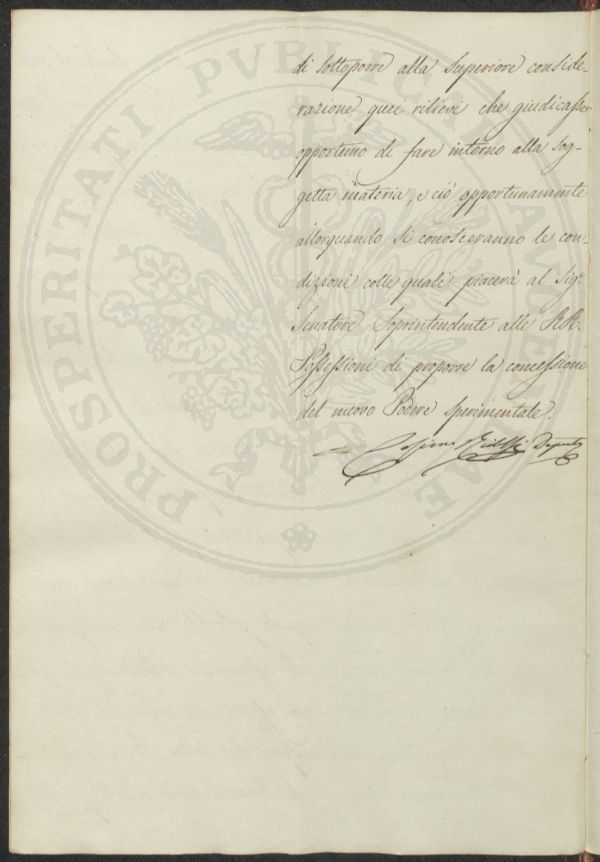 di sottoporre alla Superiore conside-
razione quei rilievi che giudicasse
opportuno di fare intorno alla sog-
getta materia, e ciò opportunamente
allorquando si conosceranno le con-
dizioni colle quali piacerà al Sigr.
Senatore Soprintendente alle RR.
Possessioni di proporre la concessione
del nuovo Podere sperimentale.
Cosimo Ridolfi Deputo
PROSPERITATI PVBLICAE AVGENDAE